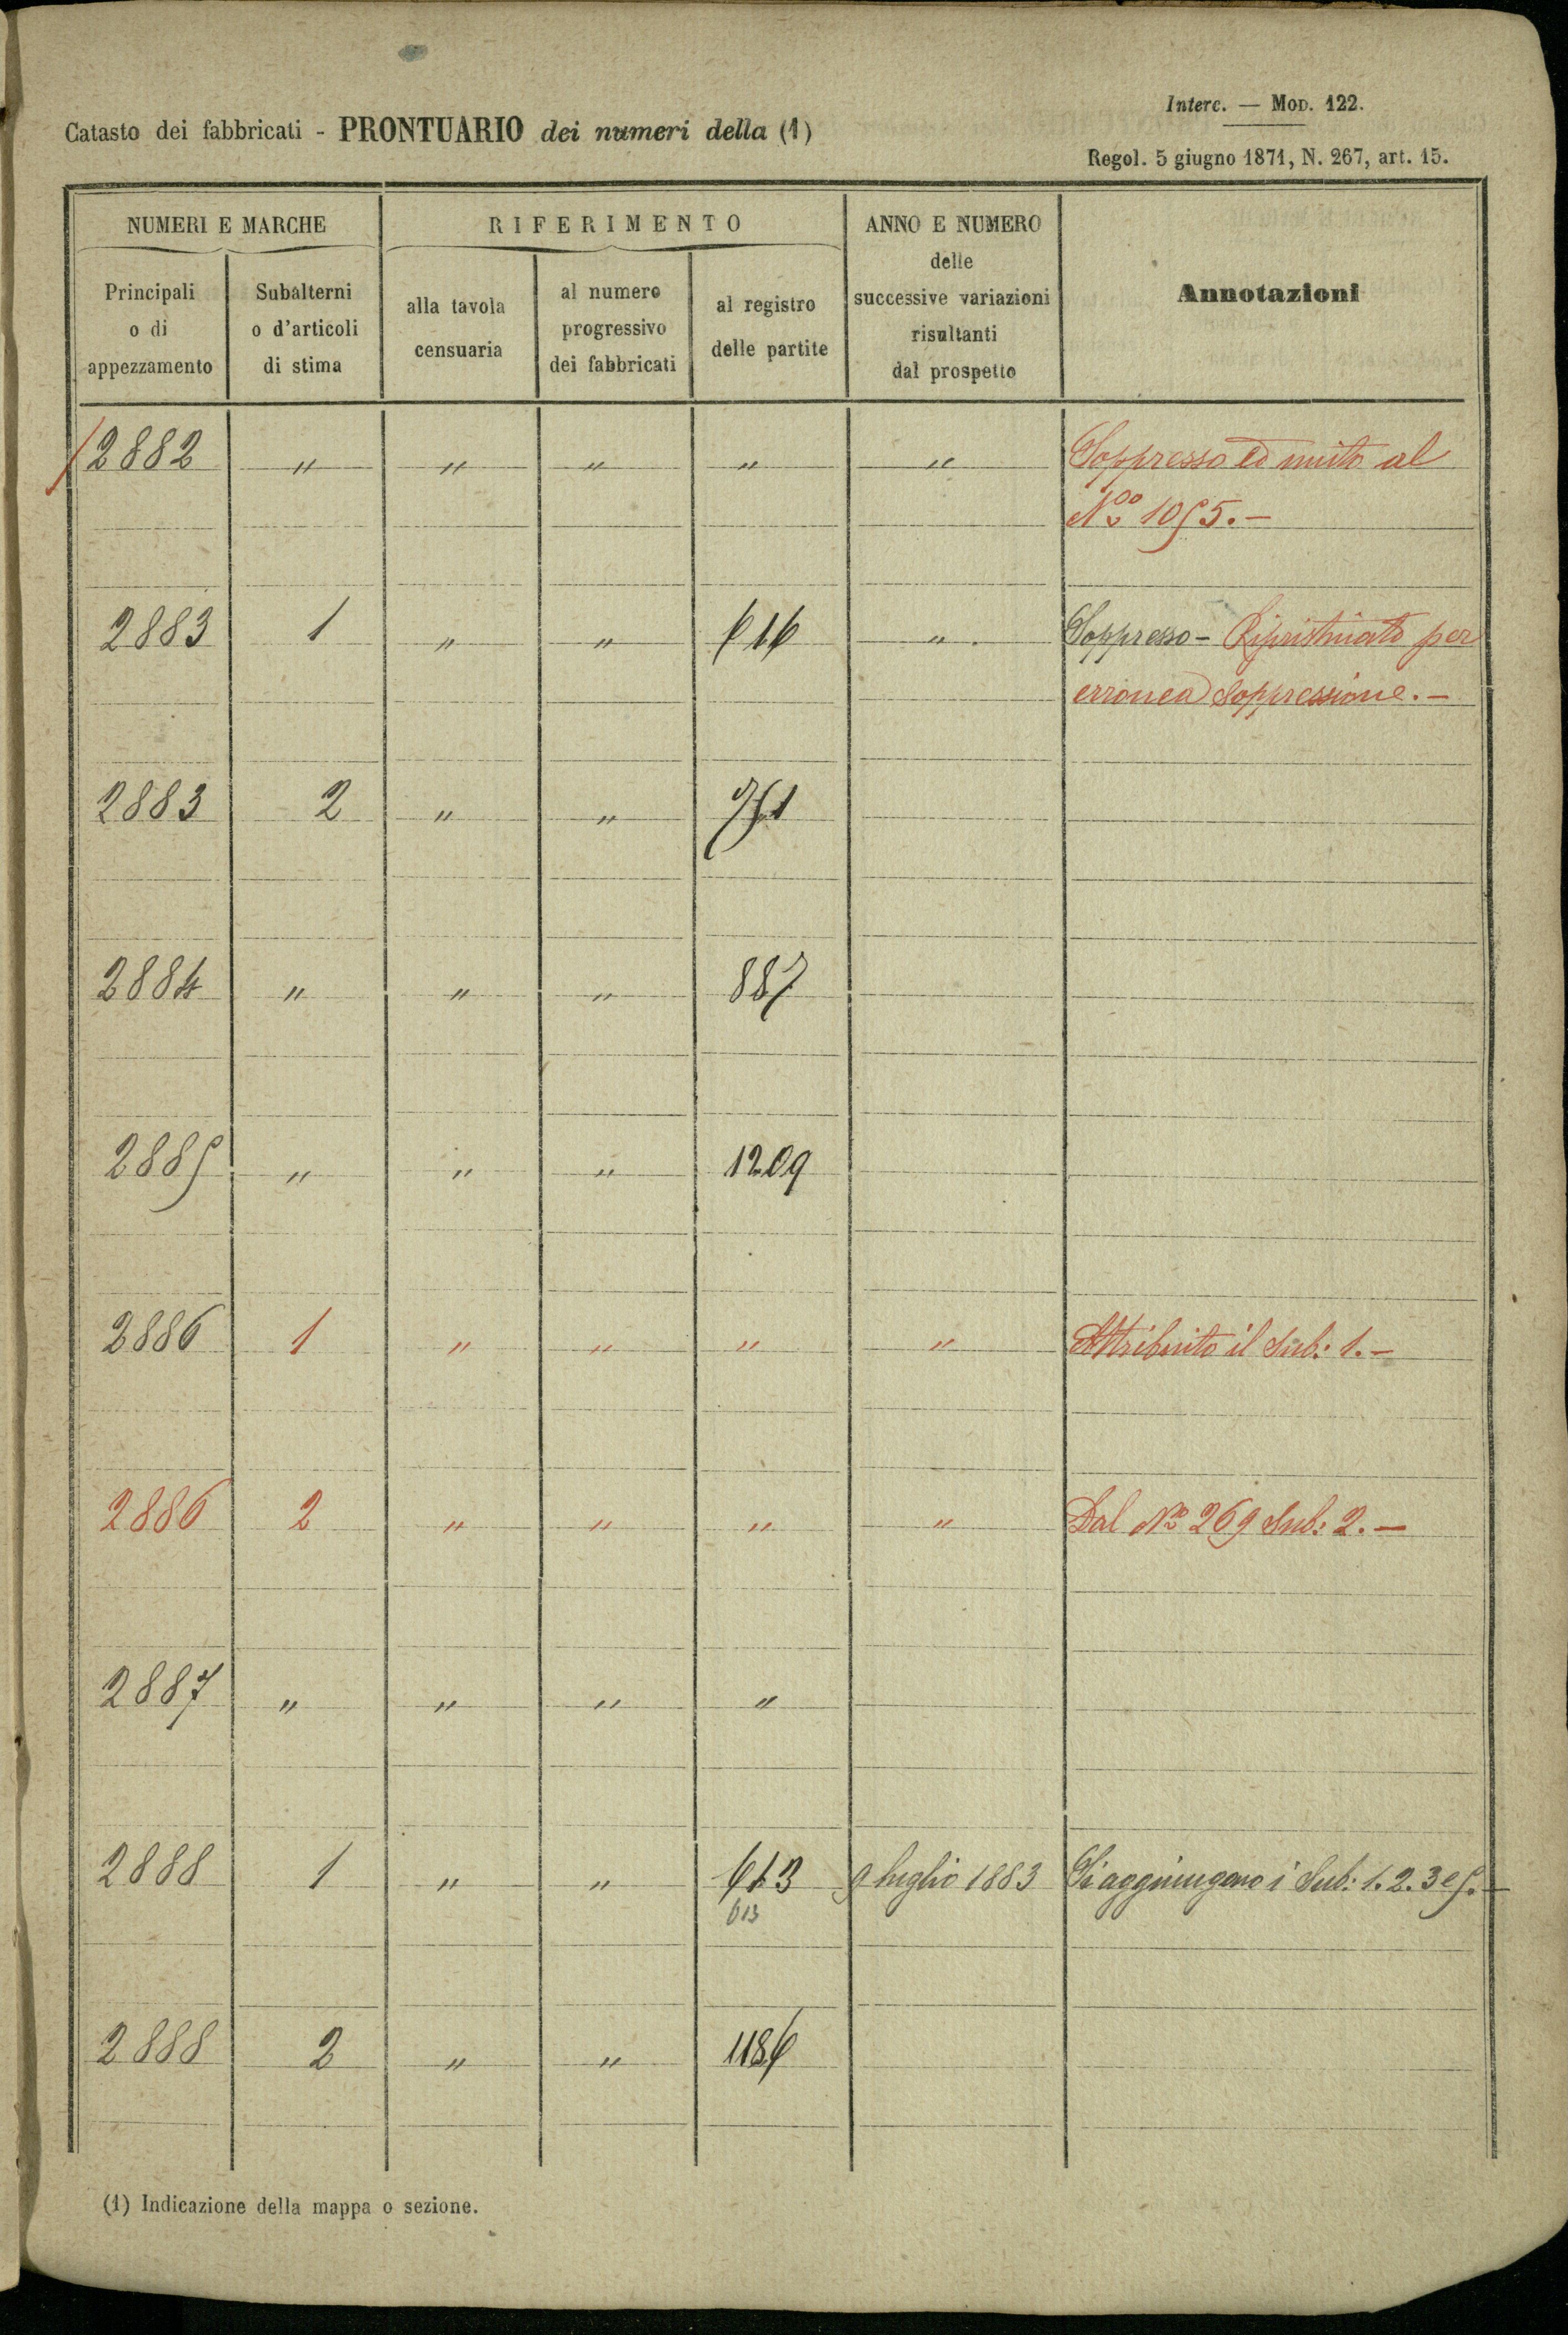 Interc. — Mod. 122.
Catasto dei fabbricati - PRONTUARIO dei numeri della (1)
Regol. 5 giugno 1871, N. 267, art. 15.
NUMERI E MARCHE
Principali o di appezzamento
Subalterni o d'articoli di stima
RIFERIMENTO
alla tavola censuaria
al numero progressivo dei fabbricati
al registro delle partite
ANNO E NUMERO delle successive variazioni risultanti dal prospetto
Annotazioni
2882 " " " " " Soppresso ed unito al
No 1055.-
2883 1 " " 616 " Soppresso - Ripristinato per
erronea soppressione.-
2883 2 " " 751
2884 " " " 887
2885 " " " 1209
2886 1 " " " " Attribuito il Sub: 1.-
2886 2 " " " " Dal No 269 Sub: 2.-
2887 " " " "
2888 1 " " 613 9 luglio 1883 Si aggiungono i Sub: 1. 2. 3 e 5.-
613
2888 2 " " 1186
(1) Indicazione della mappa o sezione.